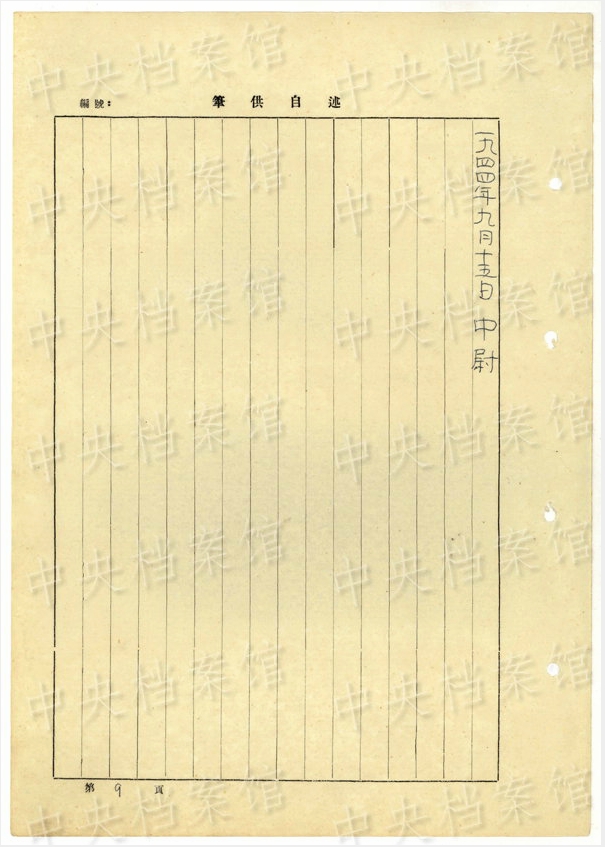 述自供筆
編號：
一九四四年九月十五日 中尉
第9頁
中央档案馆